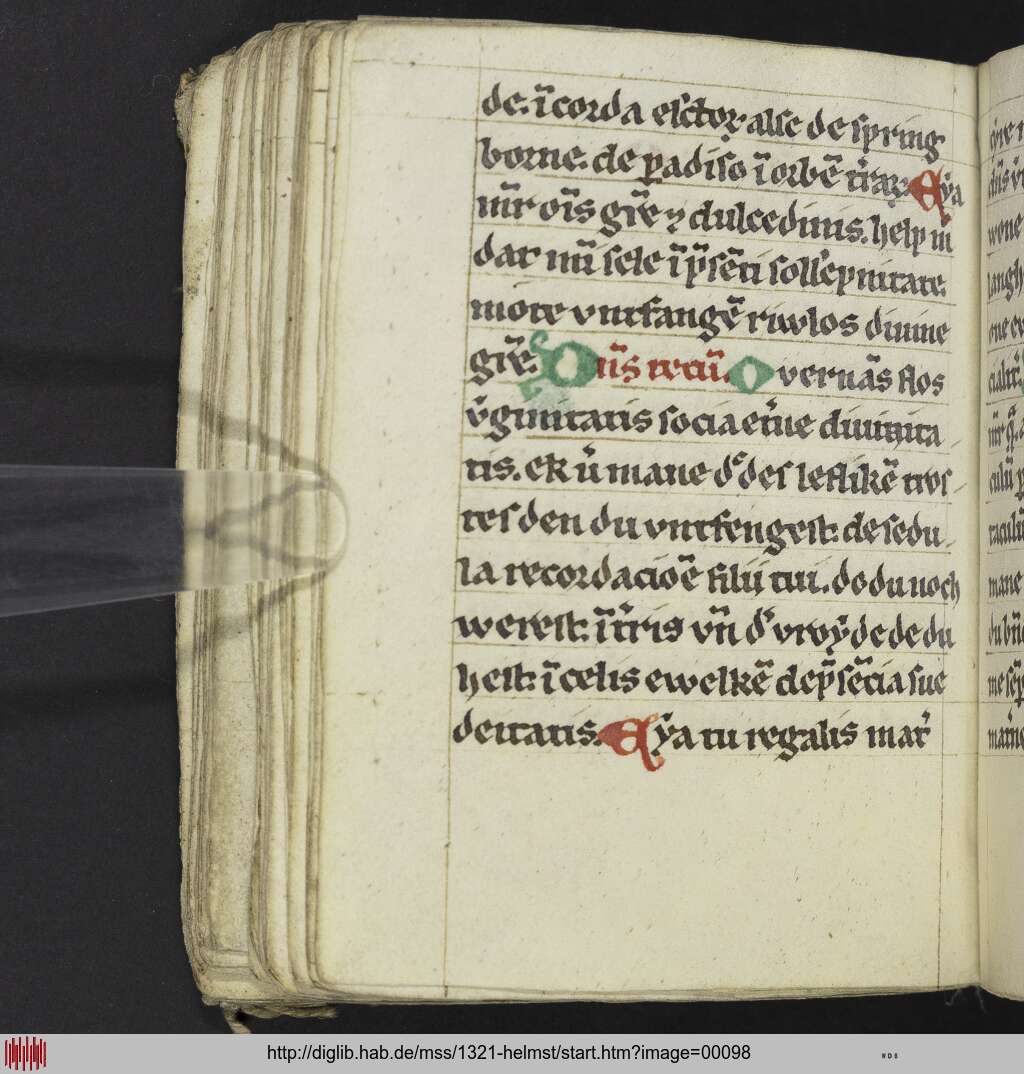 de. ī corda el'ctoꝝ alse de spring
borne. de ꝑadiso ī orbē t'raꝝ. Eẏa
mr̄ oīs gr̄e ⁊ dulcedinis. help m̄
dar mī sele ī p̄sēti soll'epnitate.
mote vntfangē riuvlos diuine
gr̄e. Dn̄s tecū. O vernās flos
v'ginitatis socia et'ne diuinita
tis. ek v̄ mane d' des leflikē tros
tes den du vntfengest: de sedu
la recordacioē filii tui. do du noch
werest: ī t'ris vn̄ d' vroẏde de du
hest: ī celis ewelkē de p̄sēcia sue
deitatis. Eẏa tu regalis mat'
http://diglib.hab.de/mss/1321-helmst/start.htm?image=00098